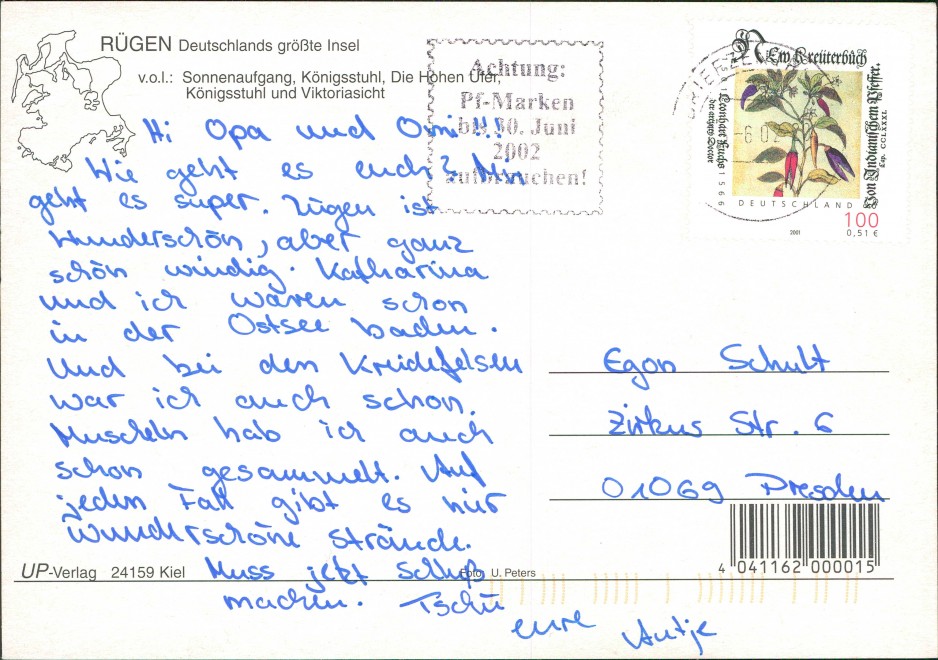 RÜGEN Deutschlands größte Insel
v.o.l.: Sonnenaufgang, Königsstuhl, Die Hohen Ufer,
Königsstuhl und Viktoriasicht
Hi Opa und Omi!!!
Wie geht es euch? Mir
geht es super. Rügen ist
wunderschön, aber ganz
schön windig. Katharina
und ich waren schon
in der Ostsee baden.
Und bei den Kreidefelsen
war ich auch schon.
Muscheln hab ich auch
schon gesammelt. Auf
jeden Fall gibt es hier
wunderschöne Strände.
Muss jetzt Schluß
machen. Tschü
eure Antje
UP-Verlag 24159 Kiel
Foto: U. Peters
Achtung:
Pf-Marken
bis 30. Juni
2002
aufbrauchen!
New Kreüterbuch
Leonhart Fuchs
der artzney Doctor
1566
Von Indianischem Pfeffer.
Cap. CCLXXXI.
DEUTSCHLAND
100
0,51 €
2001
Egon Schult
Zirkus Str. 6
01069 Dresden
4 041162 000015